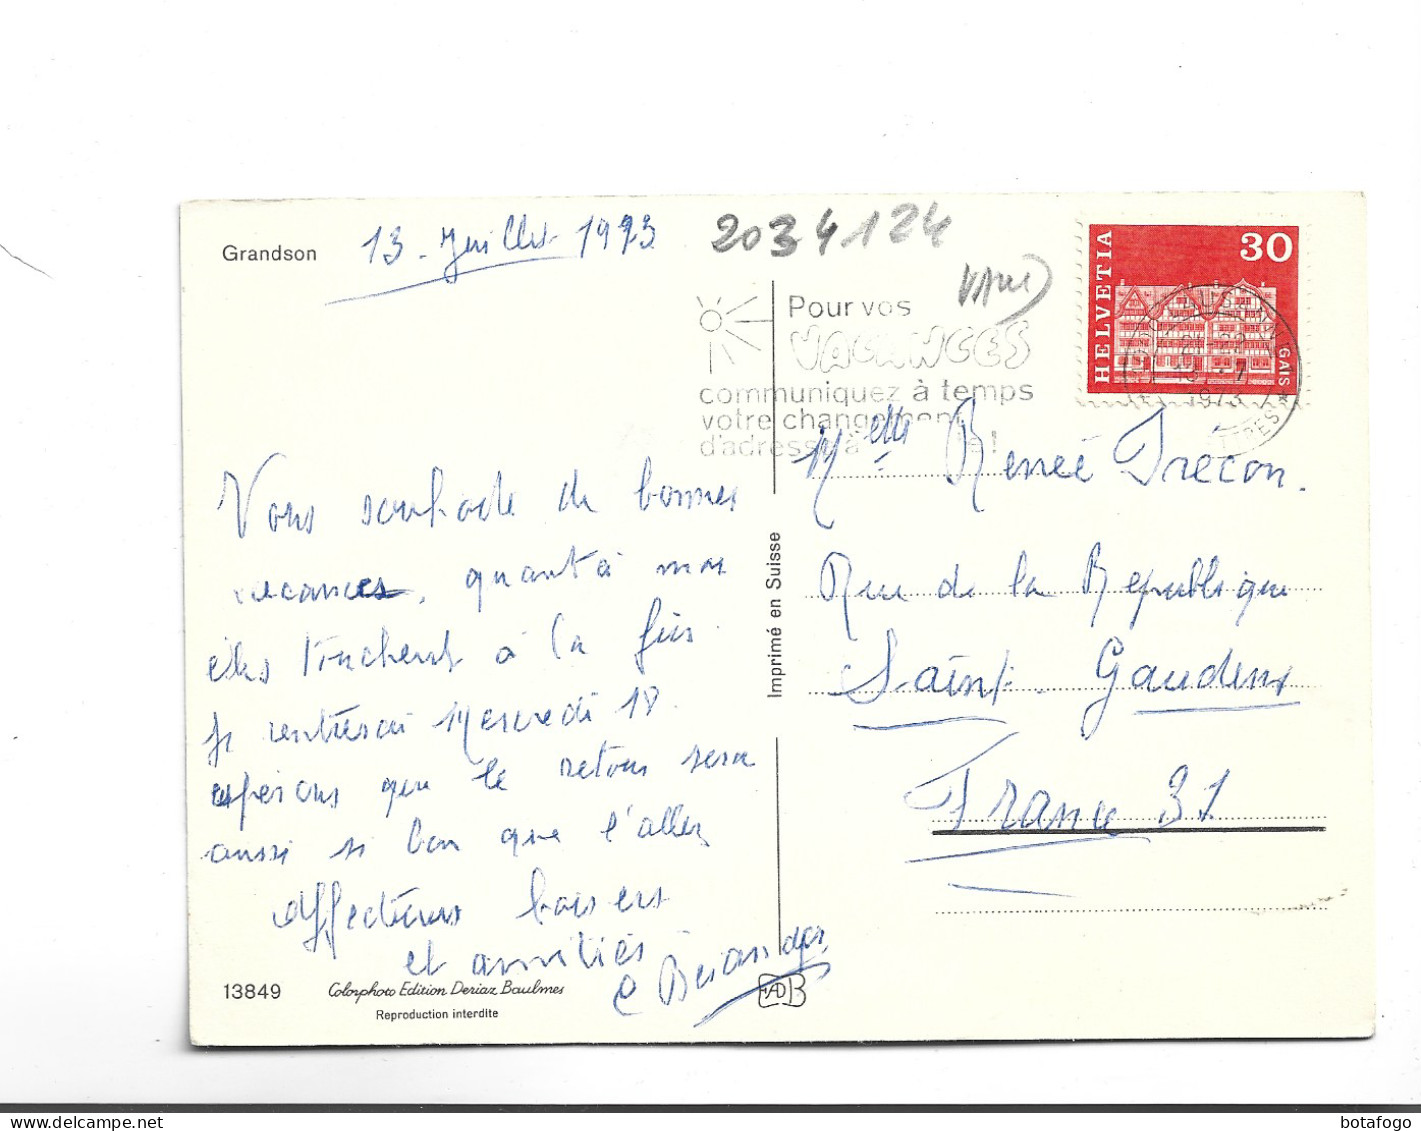 Grandson
13 - Juillet 1973
2034124
Pour vos
VACANCES
communiquez à temps
votre changement
d'adresse à
HELVETIA
30
GAIS
1973
LETTRES
Vous souhaite de bonnes
vacances, quant à mes
elles touchent à la fin.
Je rentrerai Mercredi 18.
espérons que le retour sera
aussi si bon que l'aller
Affectueux baisers
et amitiés
Melle Renée Trécon.
Rue de la République
Saint. Gaudens
France 31
Imprimé en Suisse
13849
Colorphoto Edition Deriaz Baulmes
Reproduction interdite
botafogo